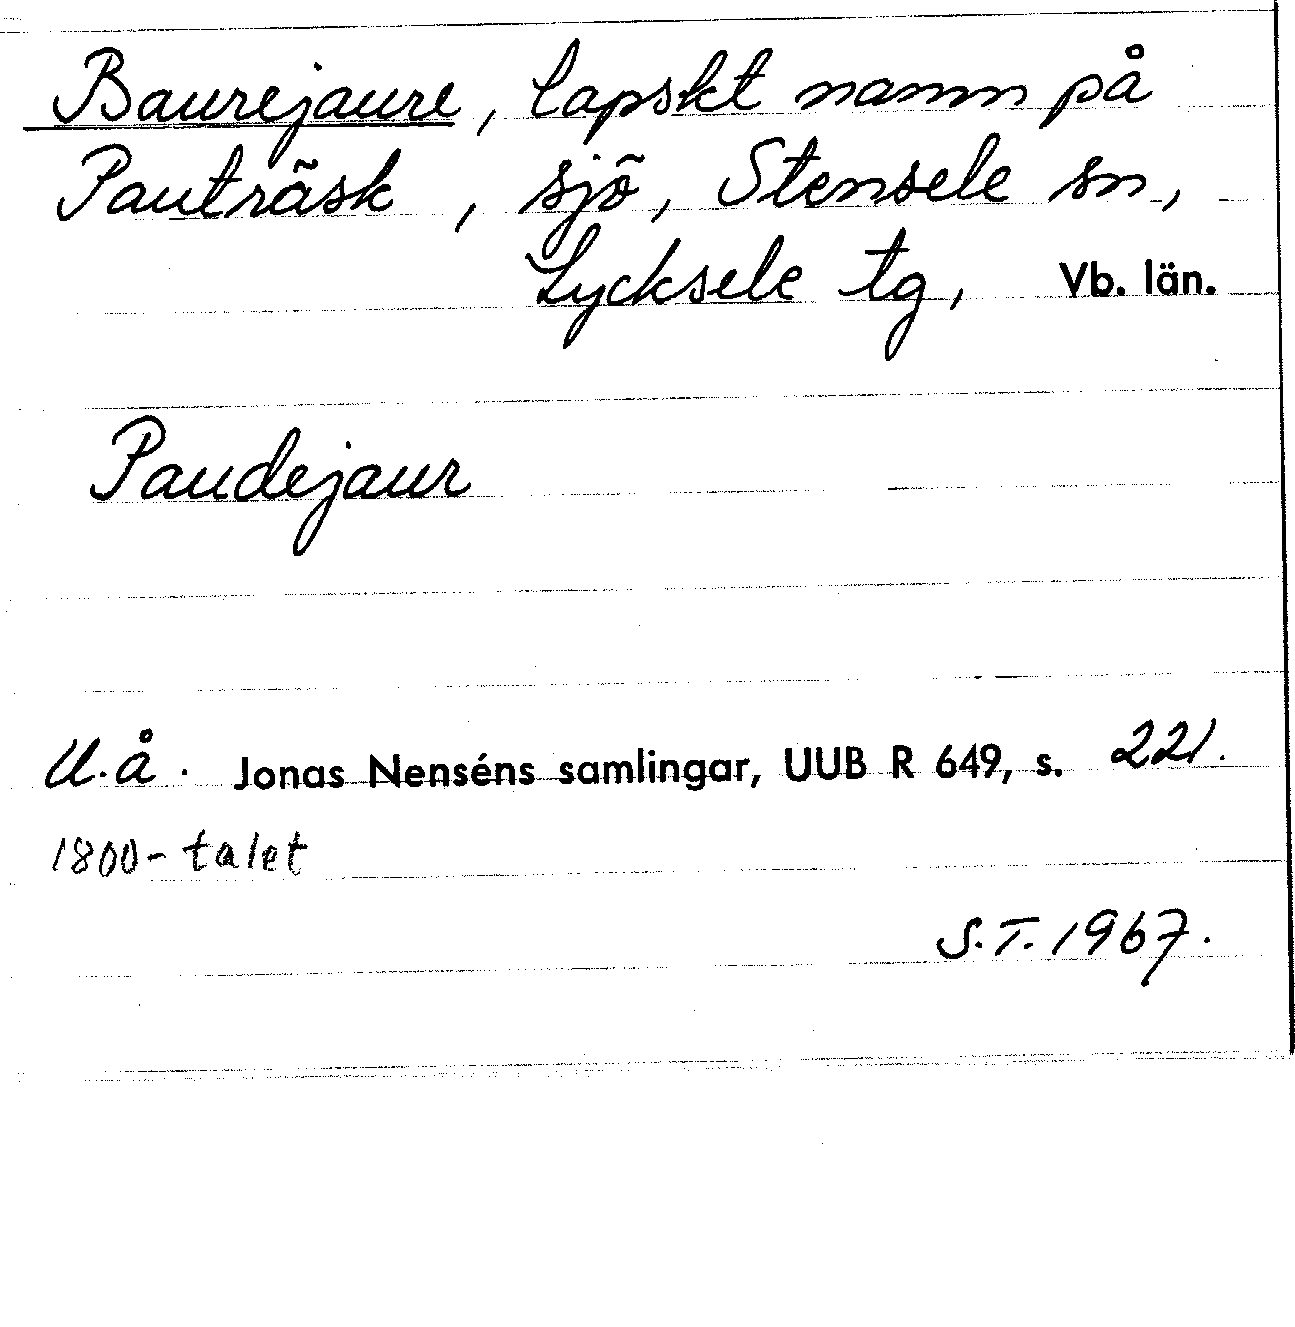 Baurejaure, lapskt namn på
Pauträsk, sjö, Stensele sn,
Lycksele tg, Vb. län.
Paudejaur
U.å. Jonas Nenséns samlingar, UUB R 649, s. 221.
1800-talet
S.T. 1967.